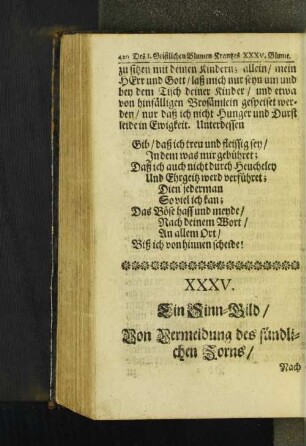 420 Des I. Geistlichen Blumen Krantzes XXXV. Blume.
zu sitzen mit deinen Kindern; allein/ mein
HErr und Gott/ laß mich nur seyn um und
bey dem Tisch deiner Kinder/ und etwa
von hinfälligen Brosämlein gespeiset wer-
den/ nur daß ich nicht Hunger und Durst
leide in Ewigkeit. Unterdessen
Gib/ daß ich treu und fleissig sey/
In dem was mir gebühret;
Daß ich auch nicht durch Heucheley
Und Ehrgeitz werd verführet;
Dien jederman
So viel ich kan;
Das Böse hass und meyde/
Nach deinem Wort/
An allem Ort/
Biß ich von hinnen scheide!
XXXV.
Ein Sinn-Bild/
Von Vermeidung des sündli-
chen Zorns/
Nach